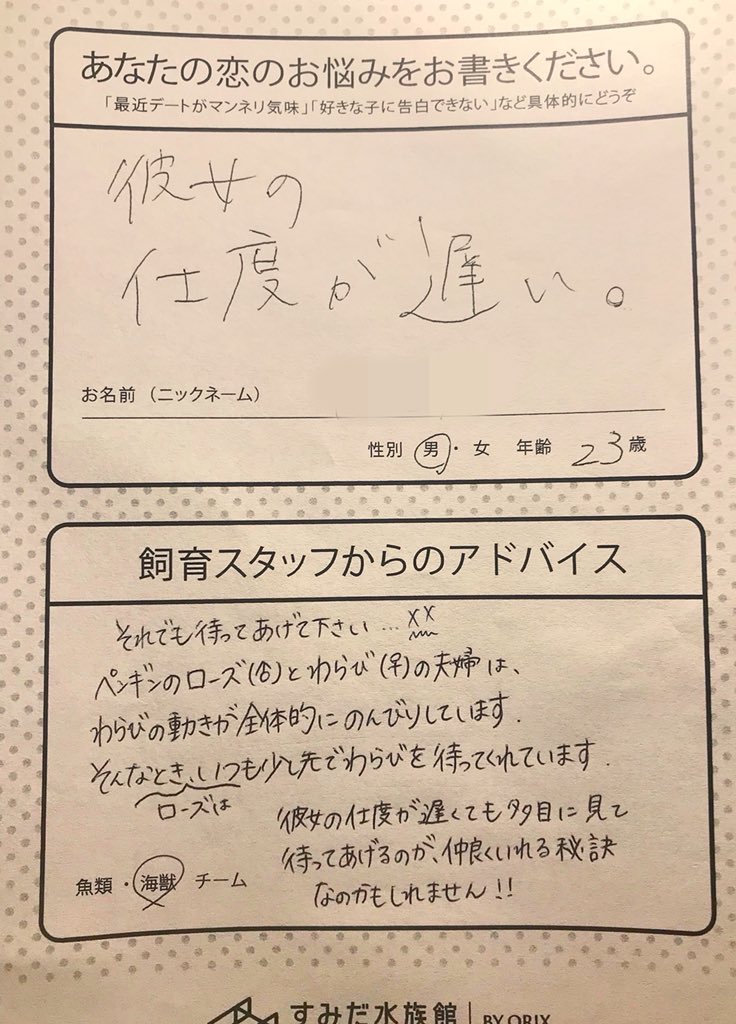 あなたの恋のお悩みをお書きください。
「最近デートがマンネリ気味」「好きな子に告白できない」など具体的にどうぞ
彼女の
仕度が遅い。
お名前 （ニックネーム）
性別 男・女 年齢 23歳
飼育スタッフからのアドバイス
それでも待ってあげて下さい…××
ペンギンのローズ(♂)とわらび(♀)の夫婦は、
わらびの動きが全体的にのんびりしています.
そんなとき、いつも少し先でわらびを待ってくれています.
ローズは
彼女の仕度が遅くても多目に見て
待ってあげるのが、仲良くいれる秘訣
なのかもしれません!!
魚類・海獣 チーム
すみだ水族館 | BY ORIX